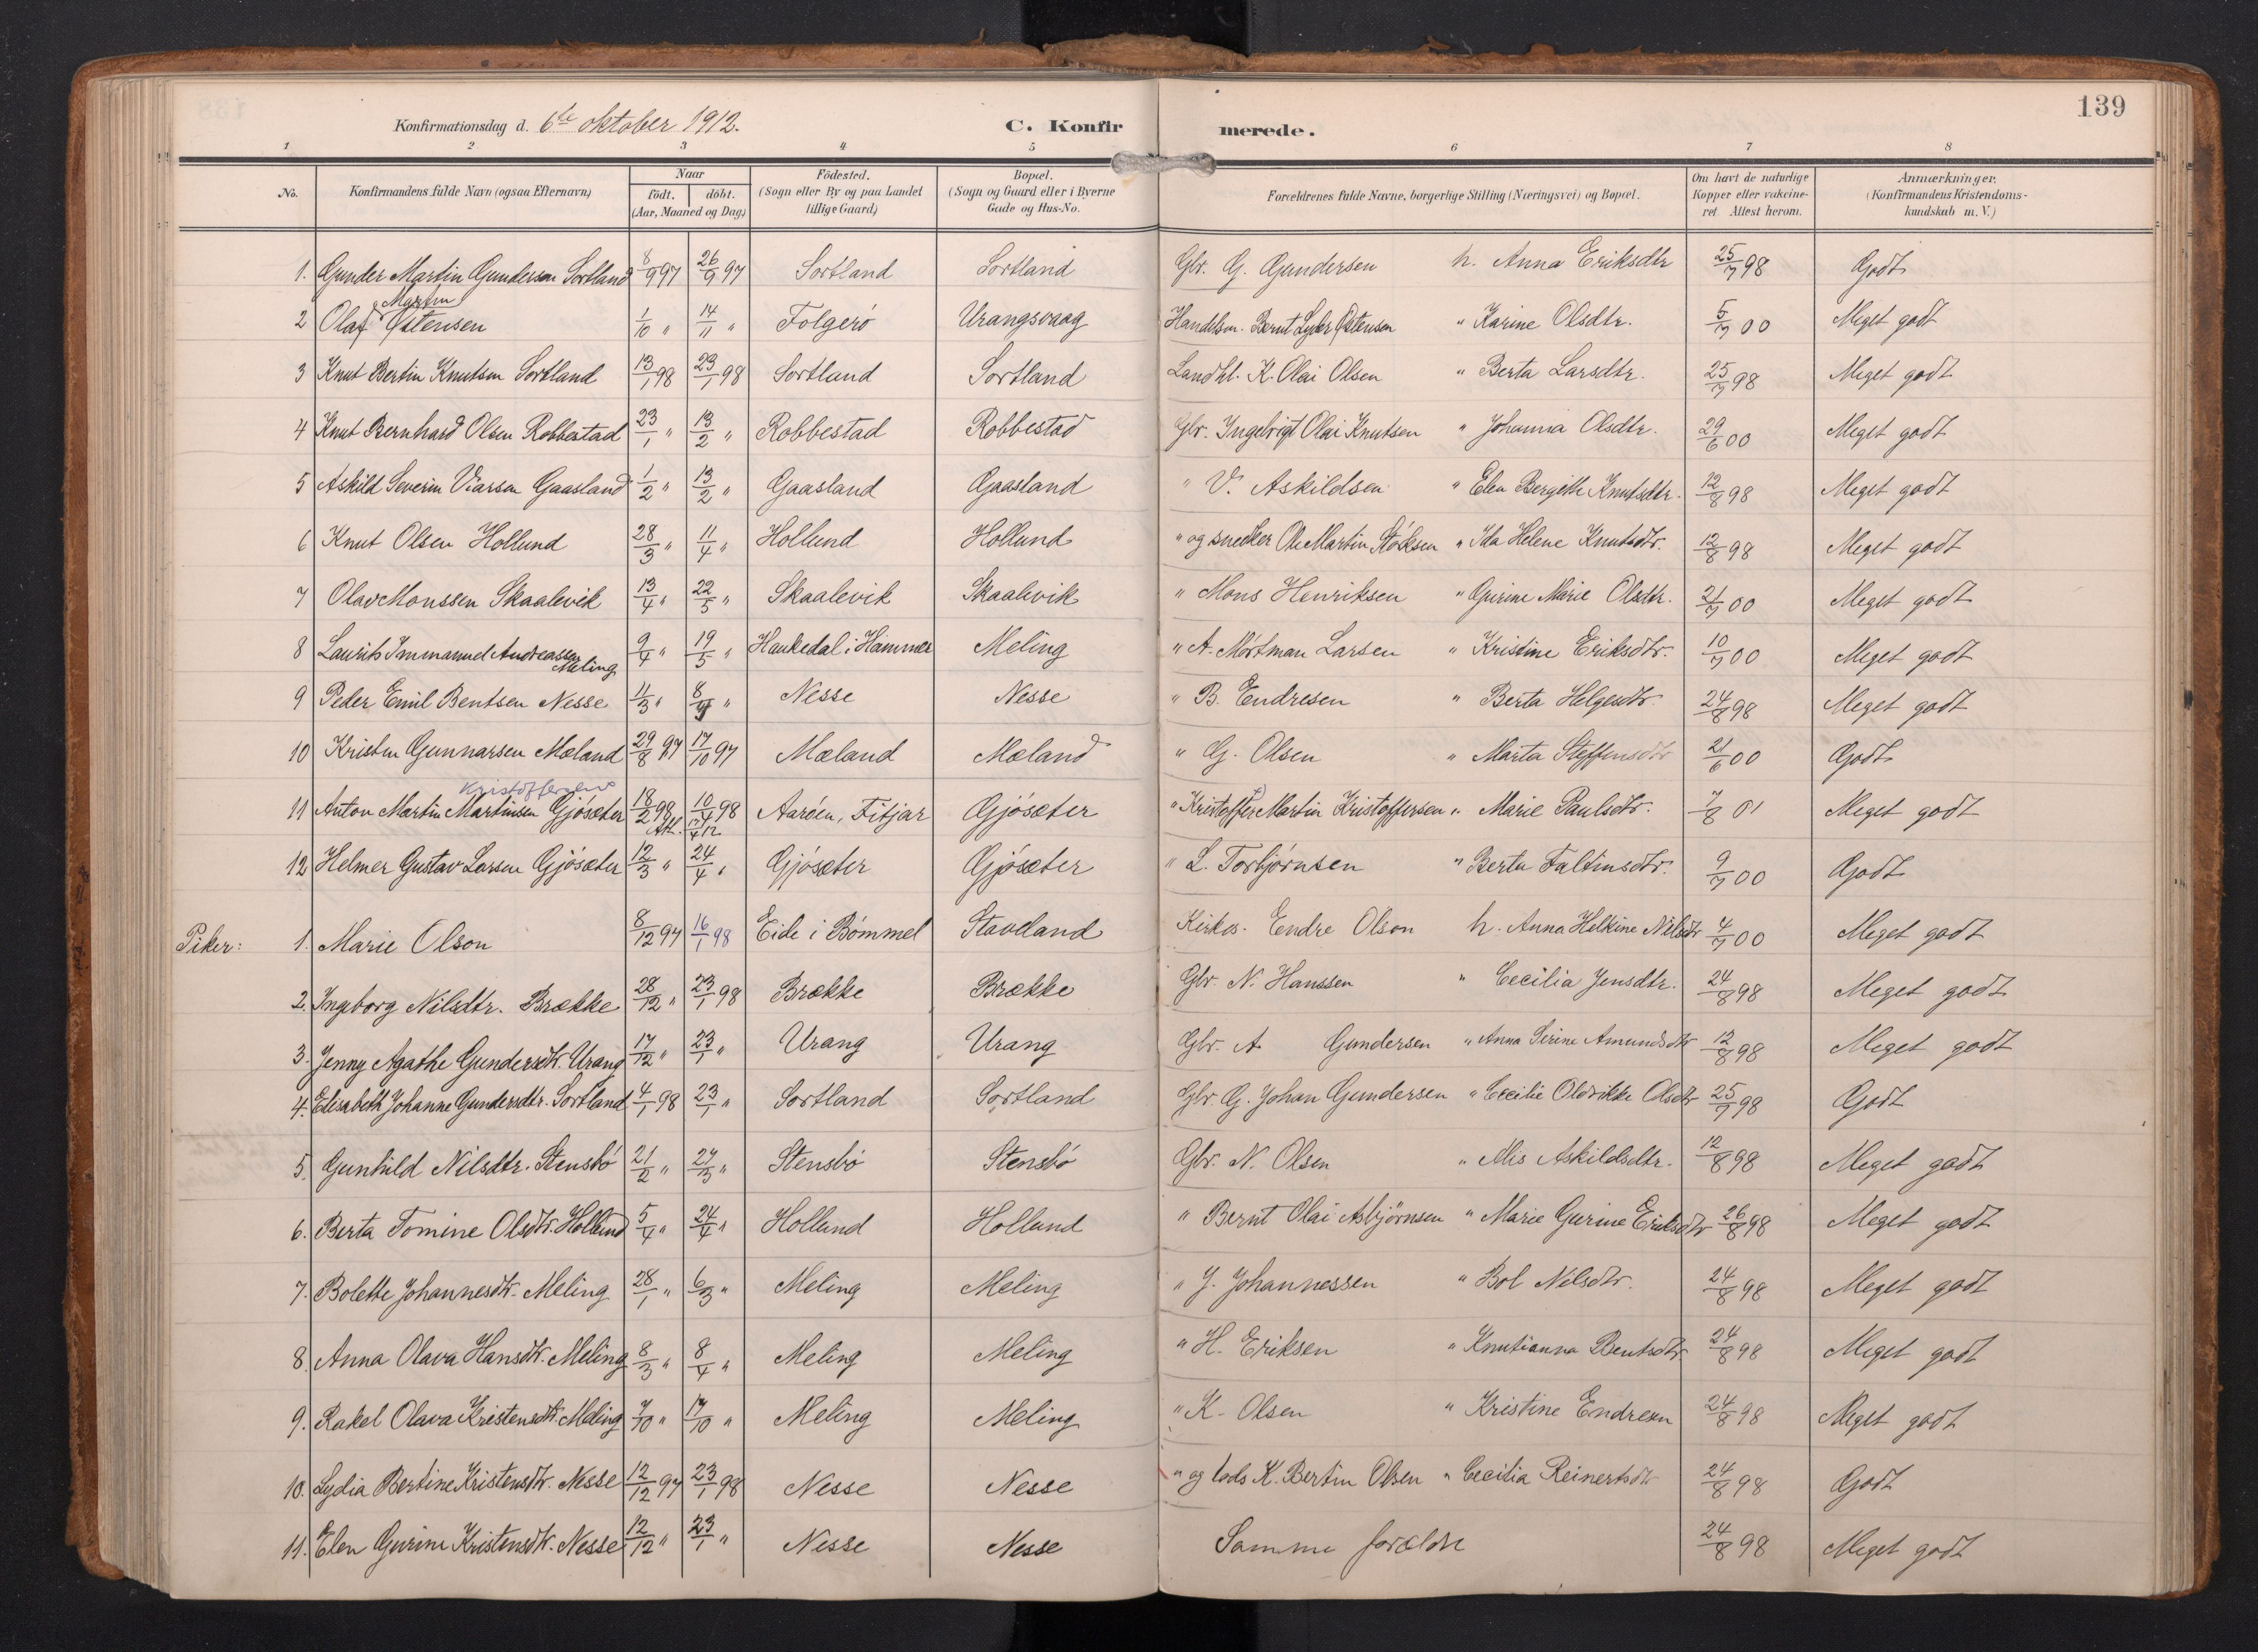 Konfirmationsdag d. 6te oktober 1912. C. Konfirmerede. 139
1 2 3 4 5 6 7 8
No. Konfirmandens fulde Navn (ogsaa Efternavn) Naar födt. döbt. (Aar, Maaned og Dag) Födested. (Sogn eller By og paa Landet tillige Gaard) Bopæl. (Sogn og Gaard eller i Byerne Gade og Hus-No. Forældrenes fulde Navne, borgerlige Stilling (Næringsvei) og Bopæl. Om havt de naturlige Kopper eller vaccineret. Attest herom. Anmærkninger, (Konfirmandens Kristendomskundskab m. V.)
1. Gunder Martin Gundersen Sortland 8/9 97 26/9 97 Sortland Sortland Gbr. G. Gundersen h. Anna Eriksdtr 25/7 98 Godt
2 Olaf Martin Østensen 1/10 " 14/11 " Folgerö Urangsvaag Handelsm. Bernt Lyder Østensen " Karine Olsdtr. 5/7 00 Meget godt
3 Knut Bertin Knutsen Sortland 13/1 98 23/1 98 Sortland Sortland Landhl. K. Olai Olsen " Berta Larsdtr. 25/7 98 Meget godt
4 Knut Bernhard Olsen Robbestad 23/1 " 13/2 " Robbestad Robbestad Gbr. Ingebrigt Olai Knutsen " Johanna Olsdtr. 29/6 00 Meget godt
5 Askild Severin Viarsen Gaasland 1/2 " 13/2 " Gaasland Gaasland " V. Askildsen " Elen Bergithe Knutsdtr. 12/8 98 Meget godt
6 Knut Olsen Hollund 28/3 " 11/4 " Hollund Hollund " og snedker Ole Martin " Ida Helene Knutsdtr. 12/8 98 Meget godt
7 Olav Monssen Skaalevik 13/4 " 22/5 " Skaalevik Skaalevik " Mons Henriksen " Gurine Marie Olsdtr. 21/7 00 Meget godt
8 Laurits Immanuel Andreassen Meling 9/4 " 19/5 " Haukedal i Hammer Meling " A. Mortman Larsen " Kristine Eriksdtr. 10/7 00 Meget godt
9 Peder Emil Bentsen Nesse 11/3 " 8/4 " Nesse Nesse " B. Endresen " Berta Helgesdtr. 24/8 98 Meget godt
10 Kristen Gunnarsen Mæland 29/8 97 17/10 97 Mæland Mæland " G. Olsen " Marta Steffensdtr 21/6 00 Godt
11 Anton Martin Martinsen Kristoffersen Gjösæter 18/2 98 10/4 98 Att. 17/4 12 Aaröen, Fitjar Gjösæter " Kristoffer Martin Kristoffersen " Marie Paulsdtr. 7/8 01 Meget godt
12 Helmer Gustav Larsen Gjösæter 12/3 " 24/4 " Gjösæter Gjösæter " L. Torbjørnsen " Berta Faltinsdtr. 9/7 00 Godt
Piker: 1. Marie Olson 8/12 97 16/1 98 Eide i Bömmel Stavland Kirkes. Endre Olson h. Anna Helkine Nilsdtr 4/7 00 Meget godt
2. Ingeborg Nilsdtr. Brække 28/12 " 23/1 98 Brække Brække Gbr. N. Hanssen " Cecilia Jensdtr. 24/8 98 Meget godt
3. Jenny Agathe Gundersdtr. Urang 17/12 " 23/1 " Urang Urang Gbr. A Gundersen " Anna Serine Amundsdtr 12/8 98 Meget godt
4. Elisabeth Johanne Gundersdtr. Sortland 4/1 98 23/1 " Sortland Sortland Gbr. G. Johan Gundersen " Cecilie Oldrikke Olsdtr 25/7 98 Godt
5. Gunhild Nilsdtr. Stensbö 21/2 " 27/3 " Stensbö Stensbö Gbr. N. Olsen " Alis Askildsdtr. 12/8 98 Meget godt
6. Berta Tomine Olsdtr. Hollund 5/4 " 24/4 " Hollund Hollund " Bernt Olai Asbjörnsen " Marie Gurine Eriksdtr 26/8 98 Meget godt
7. Bolette Johannesdtr. Meling 28/1 " 6/3 " Meling Meling " J. Johannessen " Bol Nilsdtr. 24/8 98 Meget godt
8. Anna Olava Hansdtr. Meling 8/3 " 8/4 " Meling Meling " H. Eriksen " Knutianna Bentsdtr 24/8 98 Meget godt
9. Rakel Olava Kristensdtr. Meling 7/10 " 17/10 " Meling Meling " K. Olsen " Kristine Endresen 24/8 98 Meget godt
10. Lydia Bertine Kristensdtr. Nesse 12/12 97 23/1 98 Nesse Nesse " og lods K. Bertin Olsen " Cecilia Reinertsdtr 24/8 98 Godt
11. Elen Gurine Kristensdtr. Nesse 12/12 " 23/1 " Nesse Nesse Samme forældre 24/8 98 Meget godt